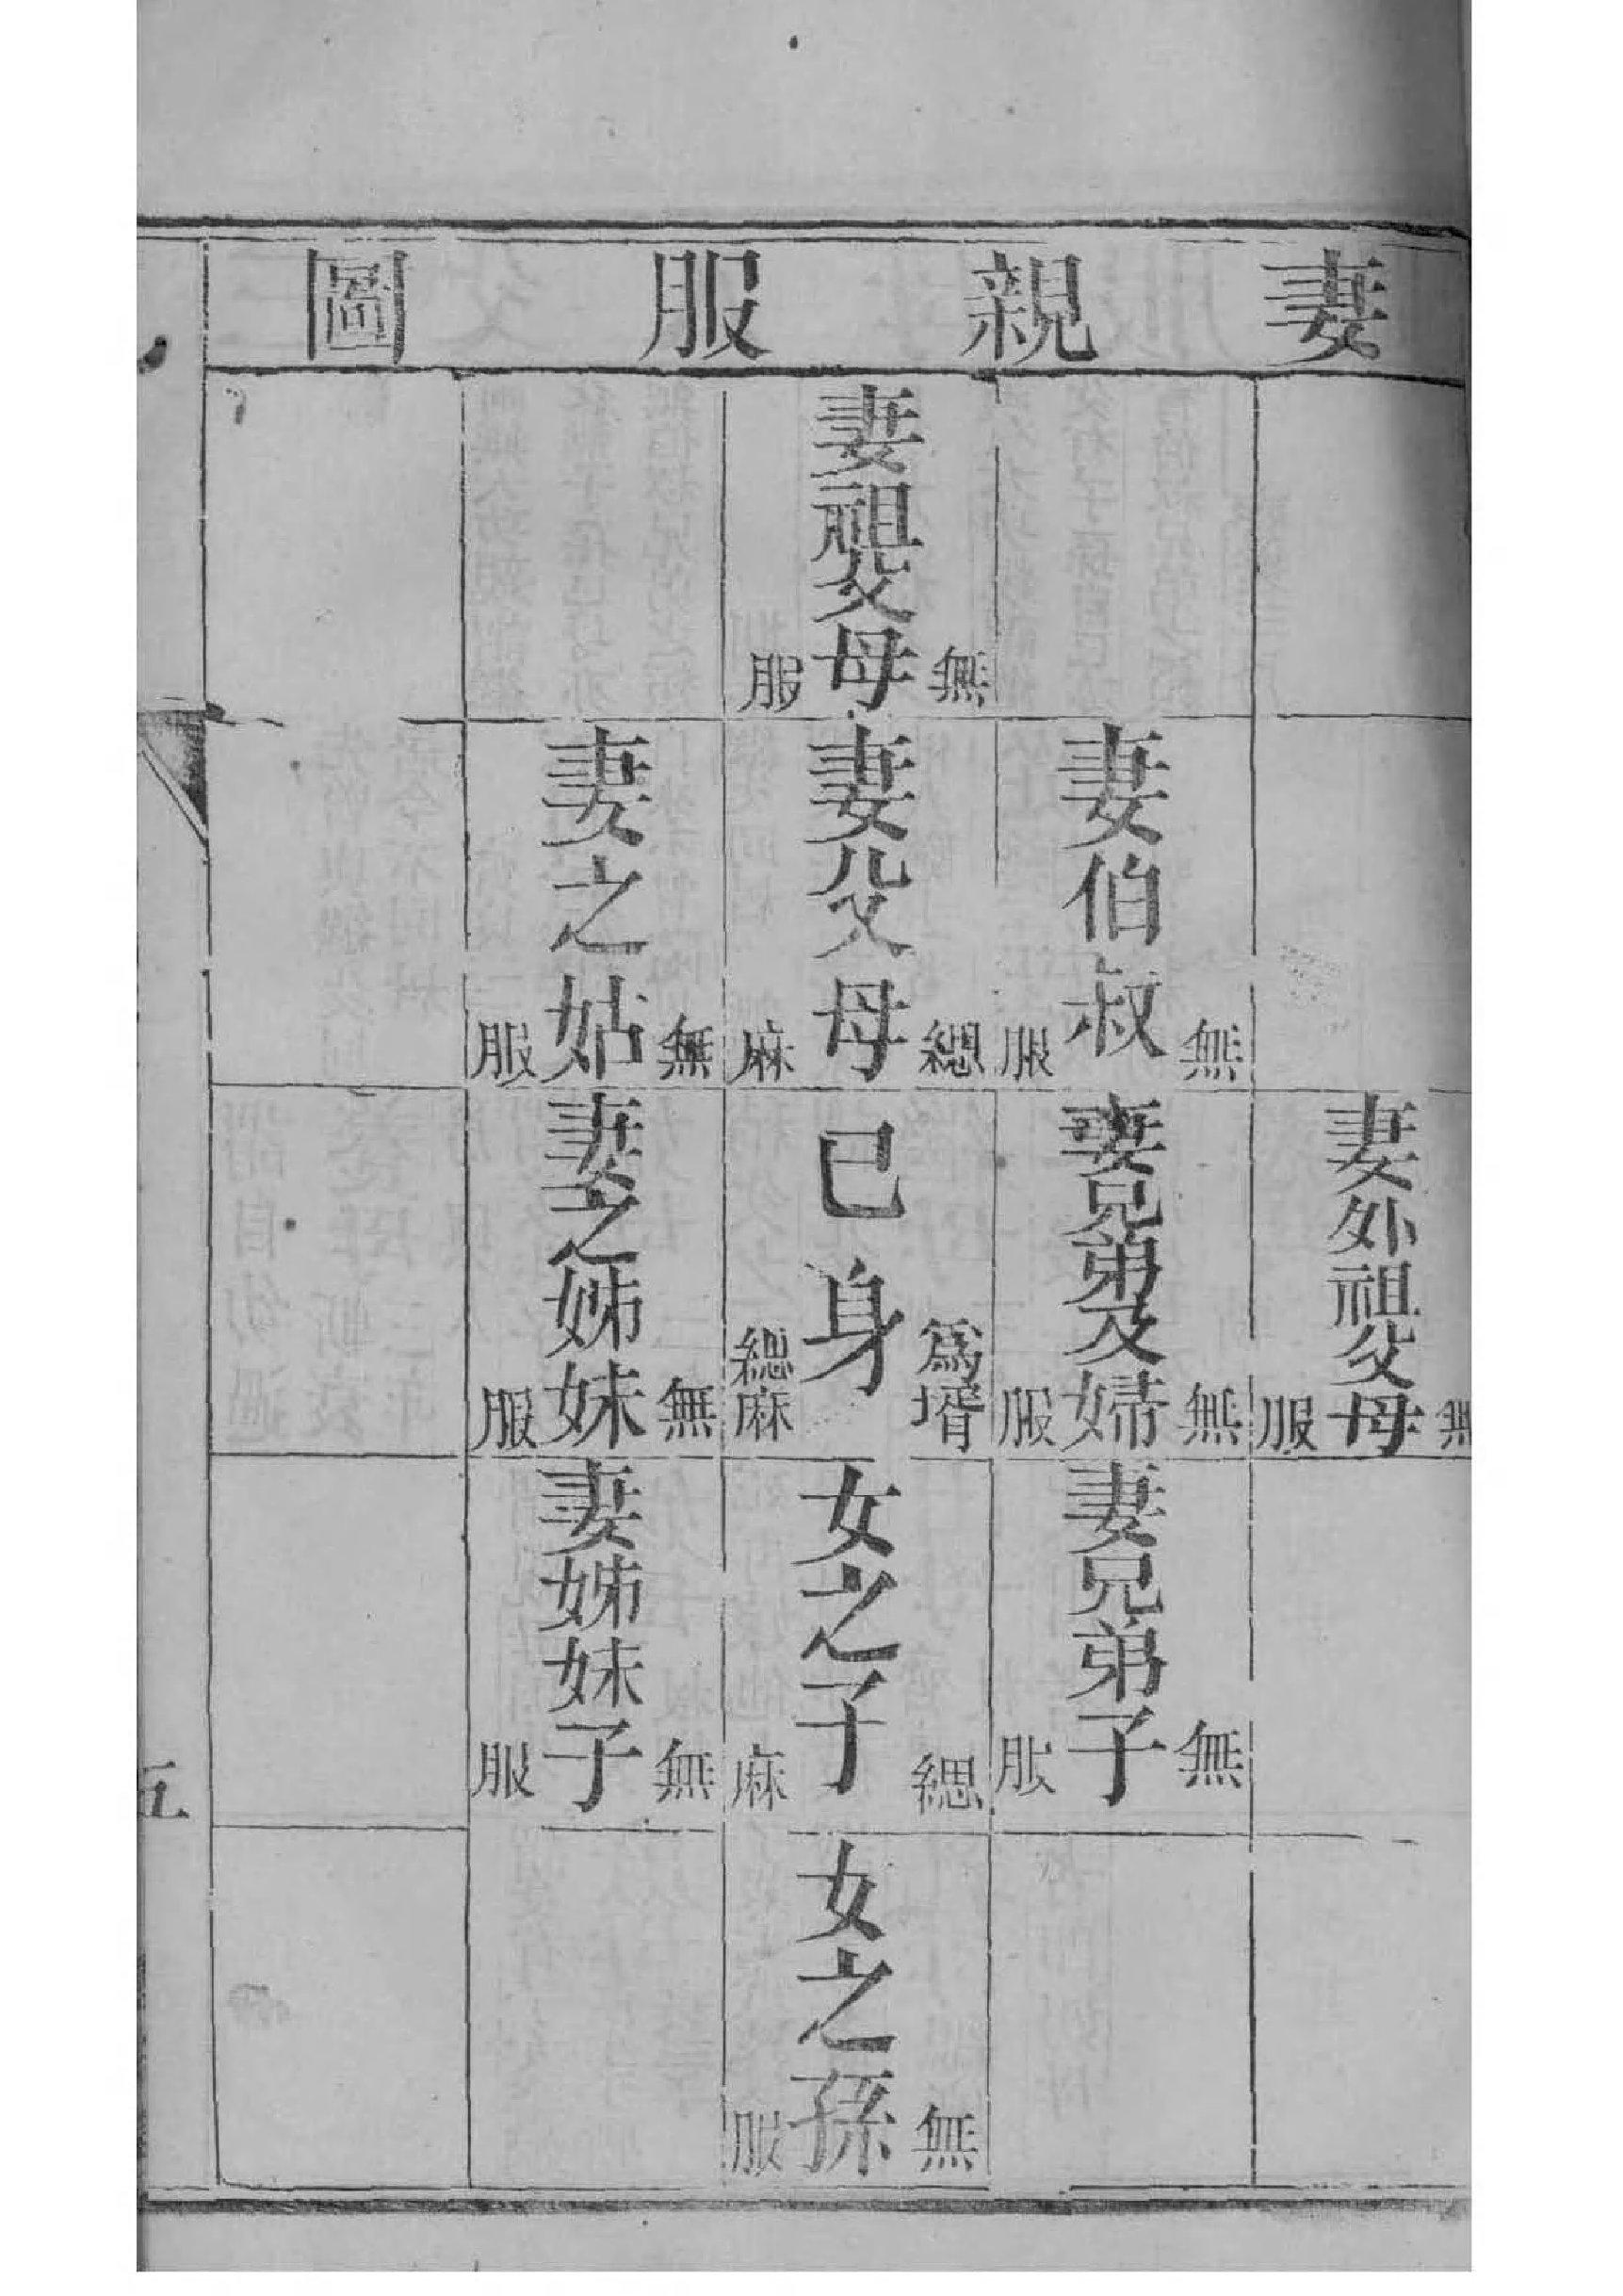 妻親服圖
妻祖父母
無服
妻伯叔
無服
妻父母
緦麻
妻之姑
無服
妻外祖父母
無服
妻兄弟及婦
無服
己身
爲壻緦麻
妻之姊妹
無服
妻兄弟子
無服
女之子
緦麻
妻姊妹子
無服
女之孫
無服
五